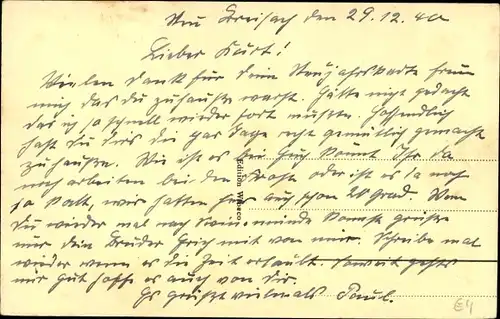 Neu Breisach den 29.12.40
Lieber Kurt!
Vielen Dank für deine Neujahrskarte freue
mich das du zuhause warst. Hätte nigt gedacht
das ich so schnell wieder fort müßte. Hoffendlich
hast du dirs die par Tage recht gemütlich gemacht
zuhause. Wie ist es bei Euch könnt Ihr da
noch arbeiten bei den Froste oder ist es da noch
so kalt, wir hatten hir auch schon 20 Grad. Wen
du wieder mal nach kommst grüße
mir dein Bruder Erich mit von mir. Schreibe mal
wieder wenn es die Zeit erlaubt. Soweit gehts
mir gut hoffe es auch von dir.
Es grüßt vielmals Paul.
Edition
E4